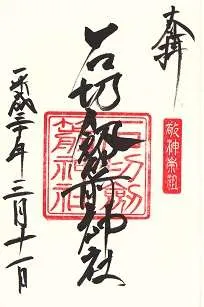 奉拝
敬神崇祖
石切劔箭神社
石切劔箭神社
平成三十年三月十一日